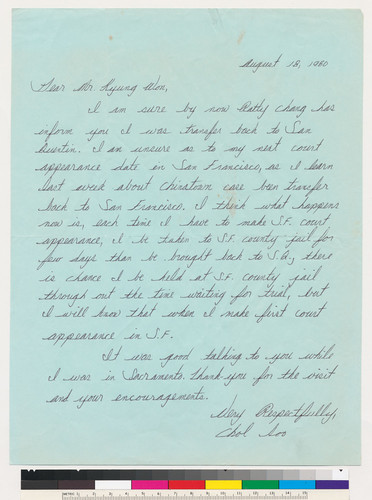 August 18, 1980
Dear Mr. Kyung Won,
I am sure by now Patty Chang has
inform you I was transfer back to San
Quintin. I am unsure as to my next court
appearance date in San Francisco, as I learn
last week about Chinatown case been transfer
back to San Francisco. I think what happens
now is, each time I have to make S.F. court
appearance, I be taken to S.F. county jail for
few days than be brought back to S.Q., there
is chance I be held at S.F. county jail
through out the time waiting for trial, but
I will know that when I make first court
appearance in S.F.
It was good talking to you while
I was in Sacramento. Thank you for the visit
and your encouragements.
Very Respectfully,
Chol Soo